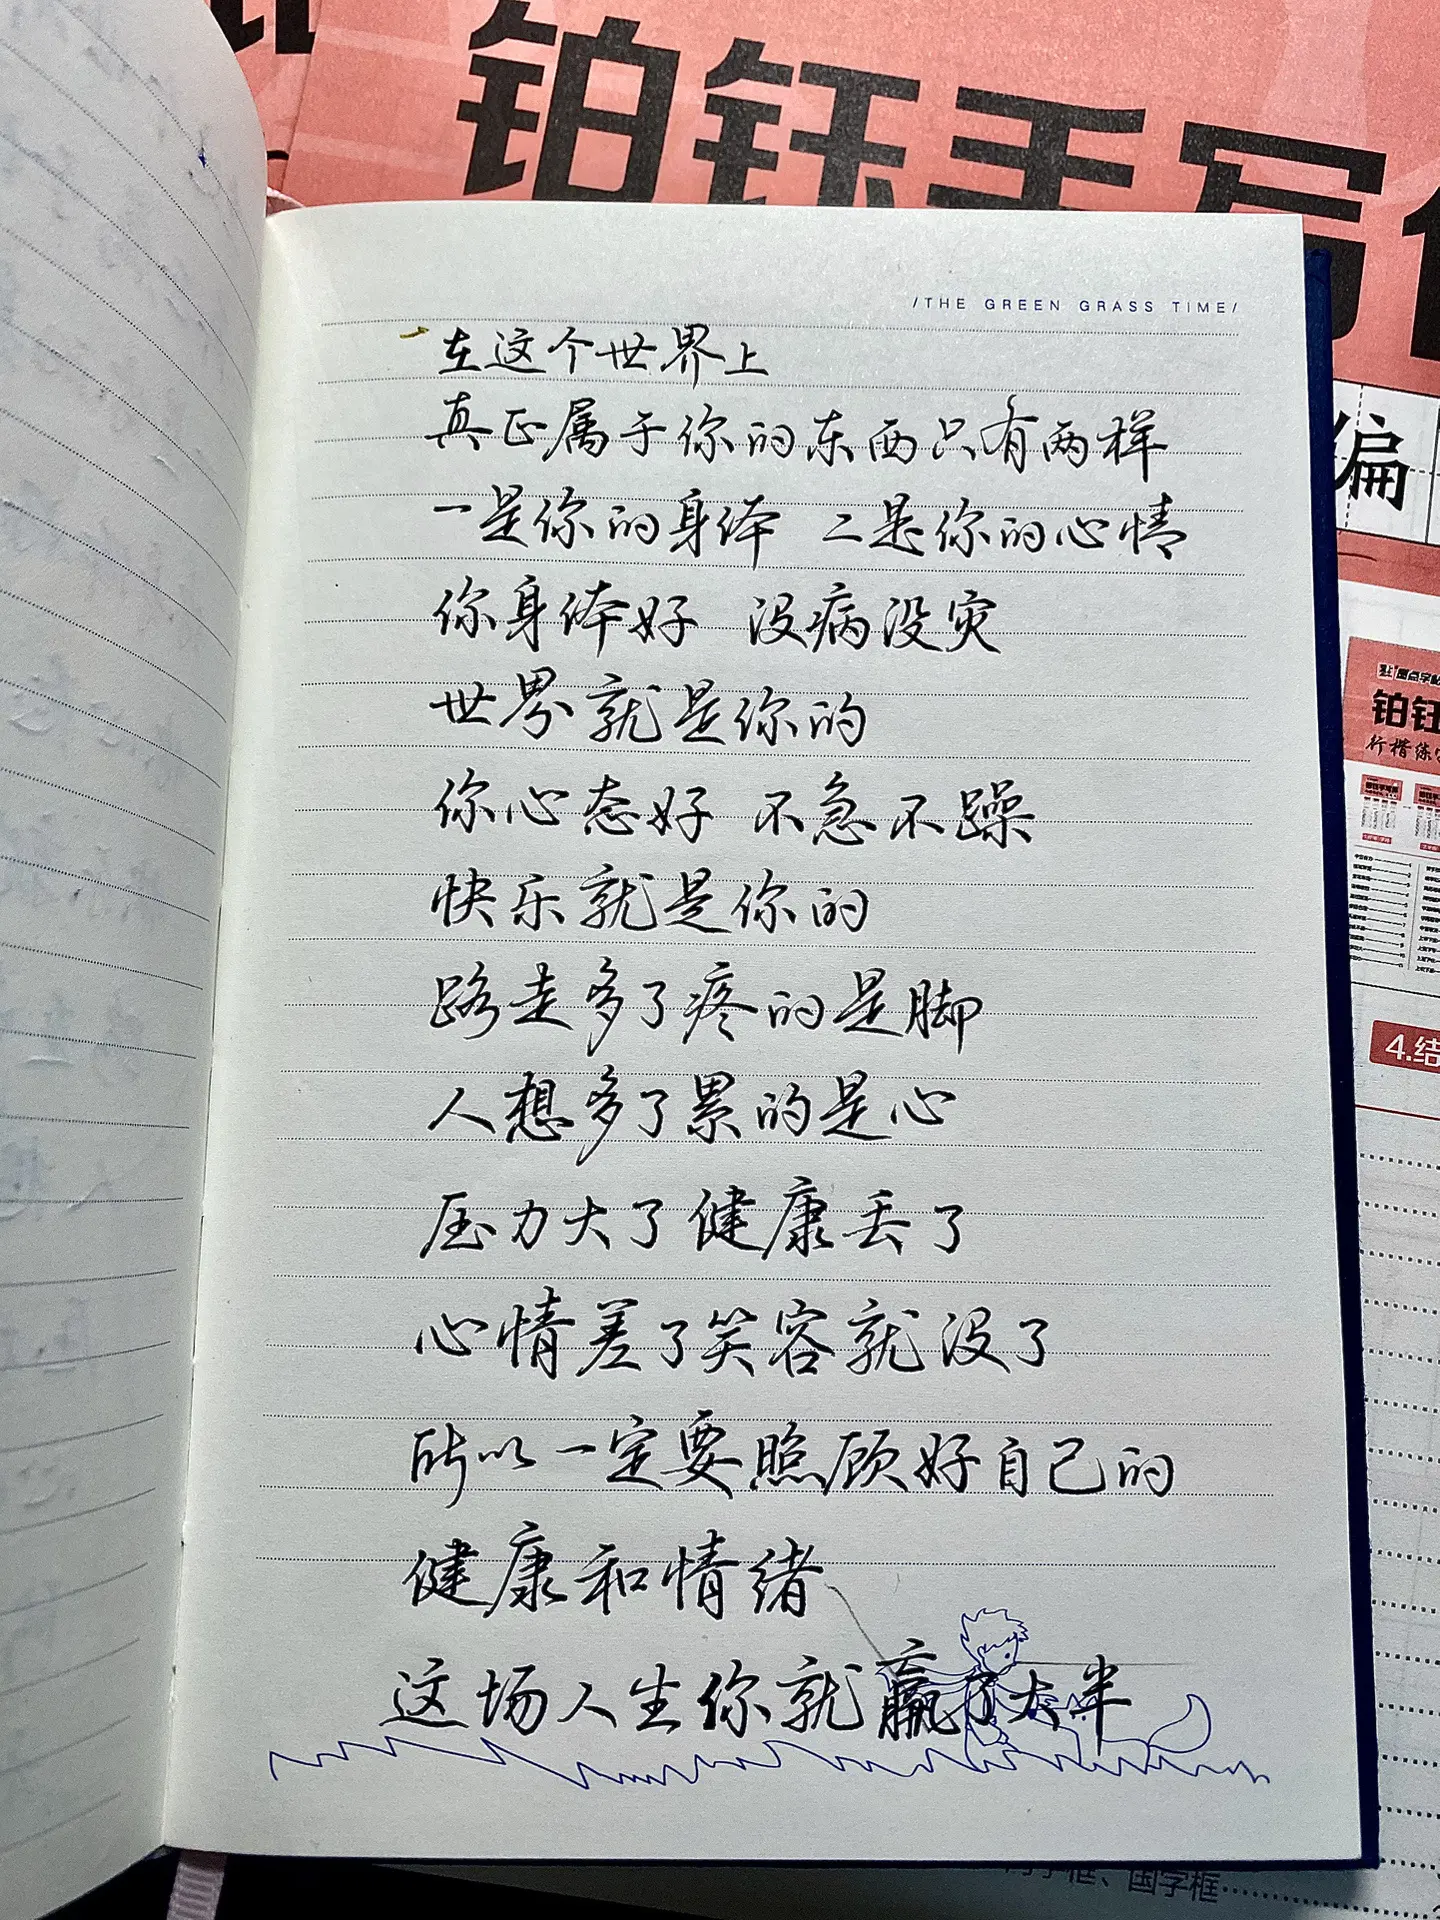 铂钰手写
/THE GREEN GRASS TIME/
在这个世界上
真正属于你的东西只有两样
一是你的身体 二是你的心情
你身体好 没病没灾
世界就是你的
你心态好 不急不躁
快乐就是你的
路走多了疼的是脚
人想多了累的是心
压力大了健康丢了
心情差了笑容就没了
所以一定要照顾好自己的
健康和情绪
这场人生你就赢了大半
编
铂钰
行楷练
4.结
字框、国字框